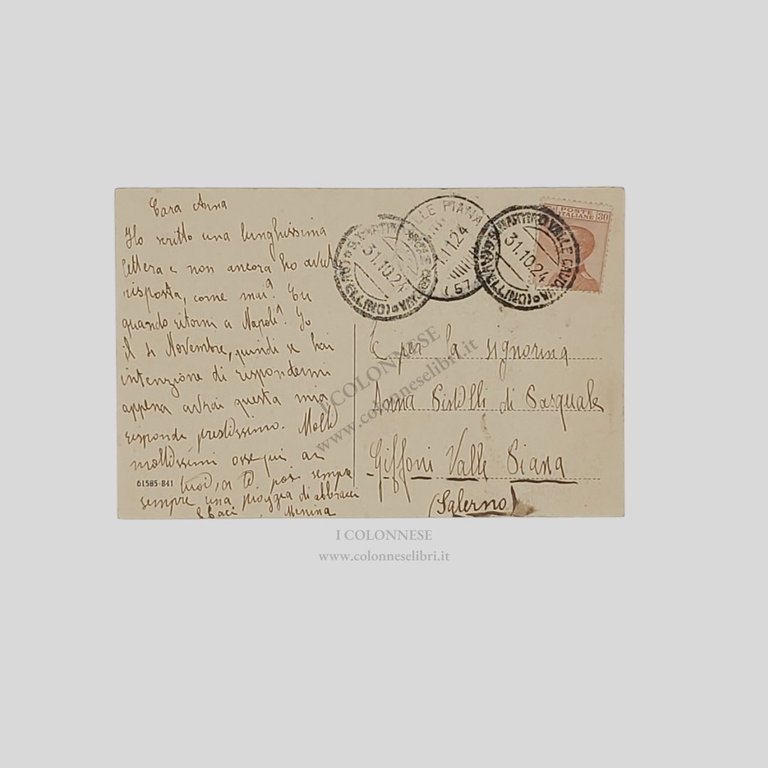 Cara Anna
Ho scritto una lunghissima
lettera e non ancora ho avuto
risposta, come mai? Tu
quando ritorni a Napoli? Io
il 4 Novembre, quindi se hai
intenzione di rispondermi
appena avrai questa mia
rispondi prestissimo. Molti
moltissimi ossequi ai
tuoi, a te poi sempre
sempre una pioggia di abbracci
e baci Minina
61585-841
VALLE PIANA
1.11.24
(57
S. MARTINO VALLE CAUDINA (AVELLINO)
31.10.24
S. MARTINO VALLE CAUDINA (AVELLINO)
31.10.24
POSTE
ITALIANE 30
per la signorina
Anna di Pasquale
Giffoni Valle Piana
(Salerno)
I COLONNESE
www.colonneselibri.it
I COLONNESE
www.colonneselibri.it